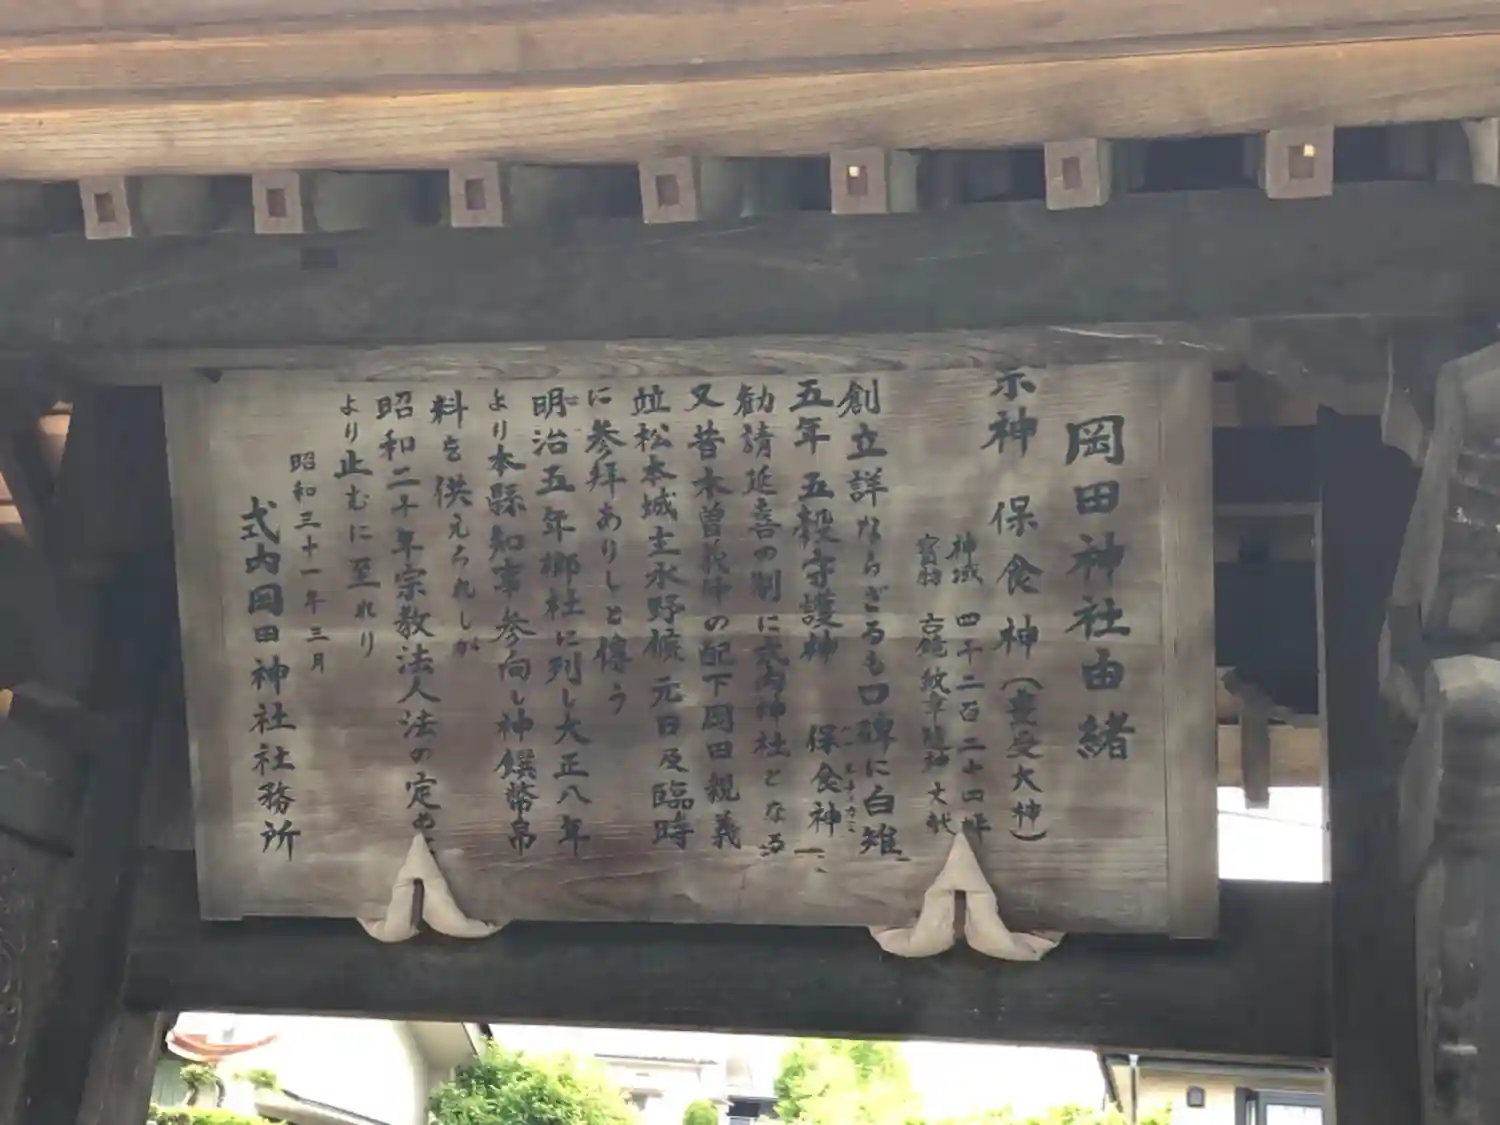 岡田神社由緒
祭神 保食神(豊受大神)
神域 四千二百二十四坪
宝物 古鏡 紋章 随神 大
創立詳ならざるも口碑に白雉
五年 五穀守護神 保食神
勧請延喜の制に式内神社となる
又昔木曽義仲の配下岡田親義
並松本城主水野候元日及臨時
に参拝ありしと傳う
明治五年郷社に列し大正八年
より本縣知事参向し神饌幣帛
料を供えられしが
昭和二十年宗教法人法の定め
より止むに至れり
昭和三十一年三月
式内岡田神社社務所